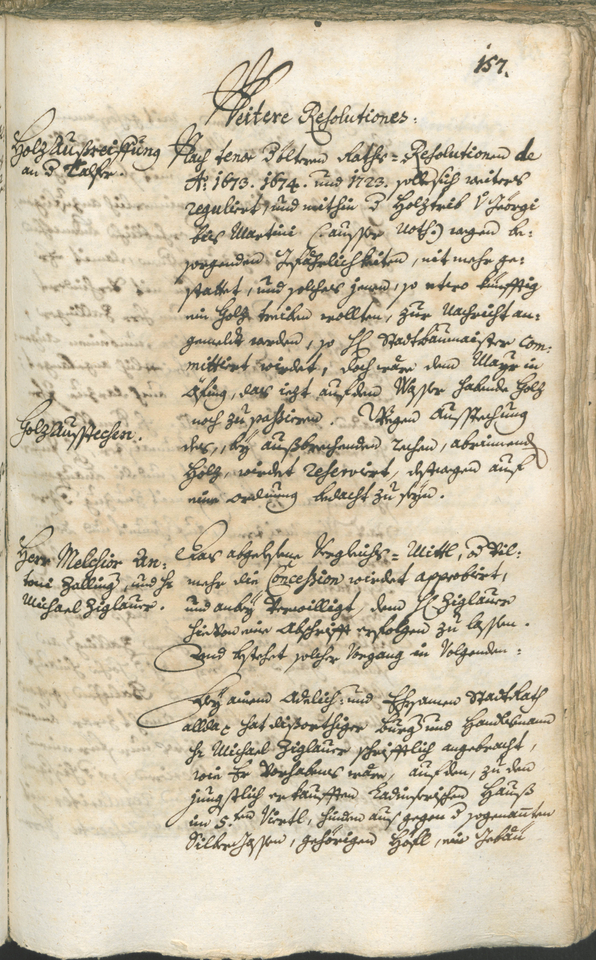 157.
Weitere Resolutiones:
Holz Außreiffung
an d Talfer.
Nach tenor Öltern Raths=Resolutionen de
Aº: 1673. 1674. und 1723. solle sich weiters
regulirt, und mithin d Holztrib v Georgi
bis Martini (: ausser Noth :) wegen be-
sorgenden Gefährlichkeiten, nit mehr ge-
stattet, und solches jenen, so etwo künfftig
ein Holz treiben wollten, zur Nachricht an-
gemelt werden, so H: Stadtbaumaister com-
mittirt wirdet, doch wäre dem Mayr in
Äfing, das iezt auf dem Wasser habende Holz
noch zu passieren. Wegen Ausstechung
Holz Ausstechen.
des, bey außbrechenden Rechen, abrinnend
Holz, wirdet reservirt, destwegen auf
eine Ordnung bedacht zu seyn.
Herr Melchior An-
toni Zallinger, und H:
Michael Ziglauer.
Das abgelesene Vergleichs=Mittl, od vil-
mehr die Concession wirdet approbirt,
und anbey verwilligt, dem H: Ziglauer
hievon eine Abschrifft erfolgen zu lassen.
Und bestehet solcher Vorgang in Volgenden:
Bey ainem Adelich: und Ehrsamen Stadt Rath
allda hat dißorthiger Burg: und Handlsmann
H: Michael Ziglauer schrifftlich angebracht,
wie Er Vorhabens wäre, auf den, zu dem
jüngstlich erkaufften Ladinserischen Hauß
im 5.ten Viertl, hinden aus gegen d sogenannten
Silbergassen, gehörigen Höfl, ein Gebäu